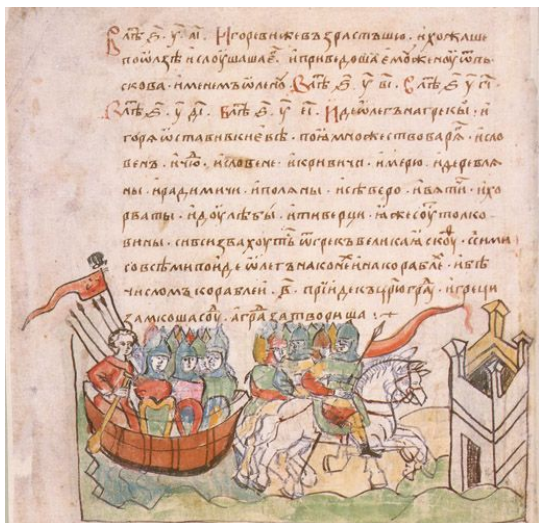 В лѣⷮ ҂ѕ҃ . у҃ . аі҃ . Игоревижевъзрастъшю . ихожаше
поѡлзѣ ислоушашаеⷢ . иприведошаемоуженоу ѿпль
скова . именемъ ѡлену . В лѣⷮ ҂ѕ҃ . у҃ ві҃ . В лѣⷮ ҂ѕ҃ . у҃ гі҃ .
В лѣⷮ ҂ѕ҃ . у҃ ді҃ . В лѣⷮ ҂ѕ҃ . у҃ . еі҃ . Идеѡлегънагрекы . и
горѧ ѡставивкиевѣ . поѧмножествоварѧⷢ . исло
венъ . ичюⷣ . исловене . икривичи . имерю . идеревлѧ
ны . ирадимичи . иполѧны . исѣверо . ивѧтичи . ихо
рваты . идоулѣбы . итиверци . ꙗжесоуⷮ толко
вины . сивсизвахоутⸯ ѿгрекъ великаꙗскоуⷴ . ссими
совсѣмипоиде ѡлегънаконеⷯ инакораблеⷯ . ибѣ
числомъкораблеи . в҃ . приидекъцрюграⷣ . игреци
замкошасоуⷣ . аграⷣзатвориша :·+